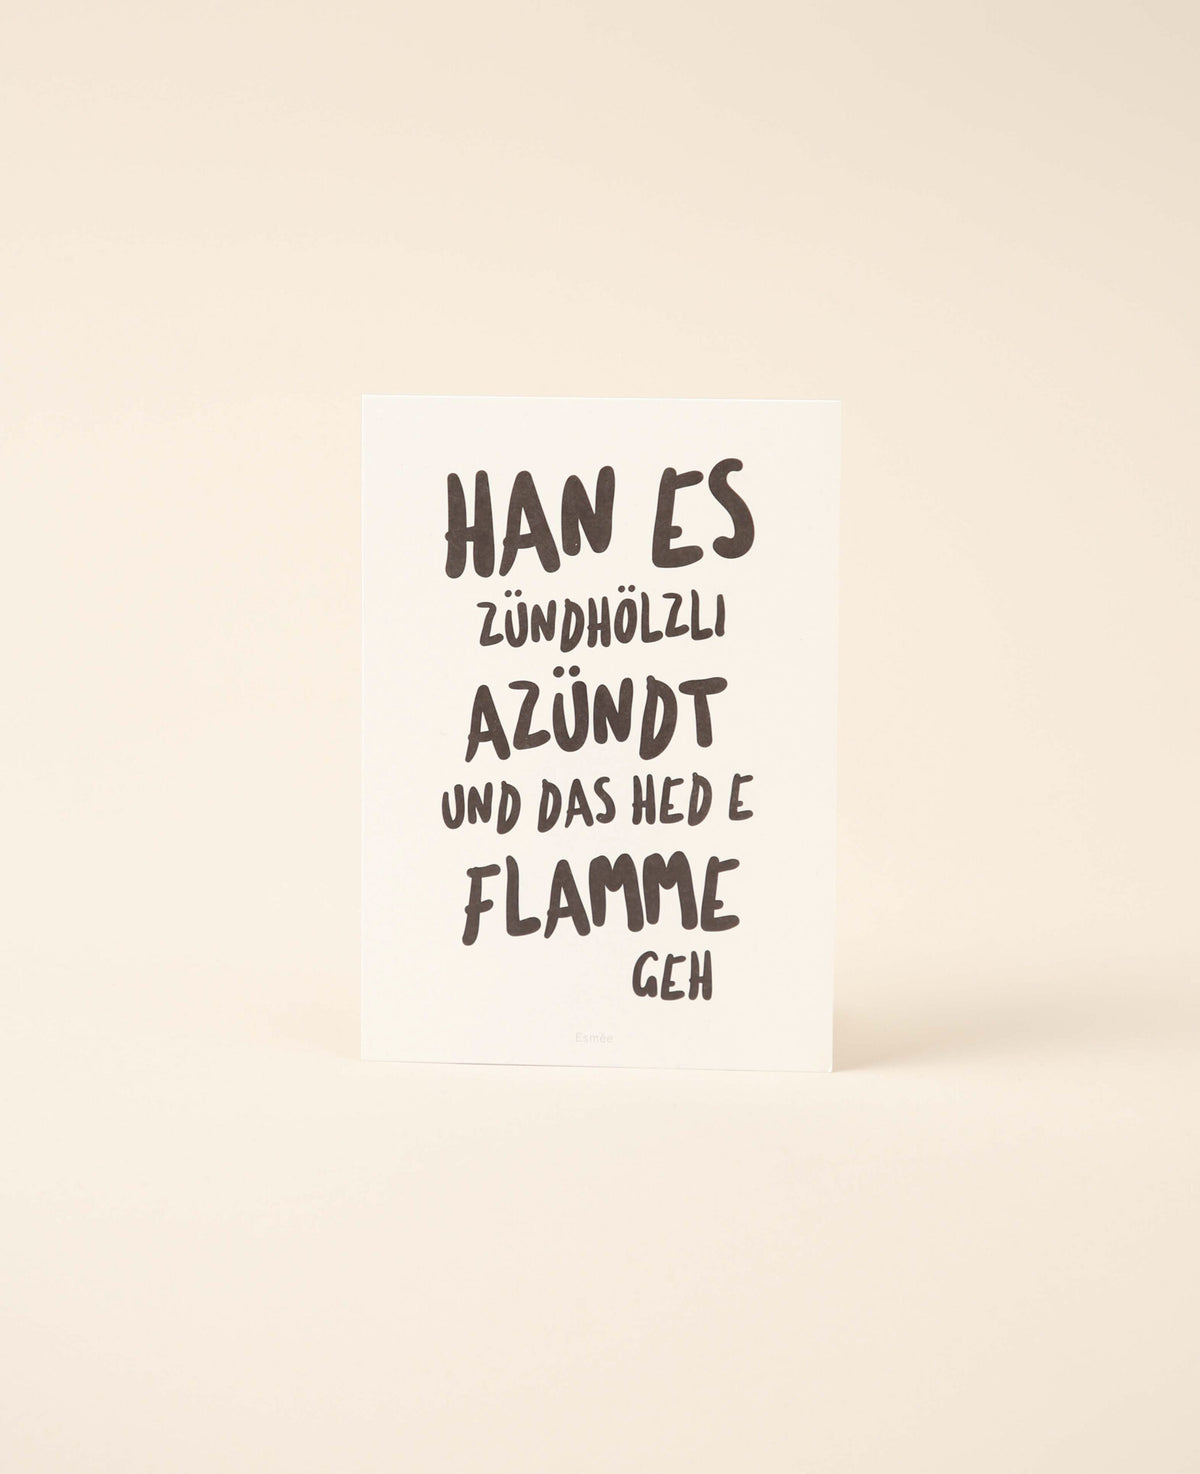 HAN ES
ZÜNDHÖLZLI
AZÜNDT
UND DAS HED E
FLAMME
GEH
Esmée